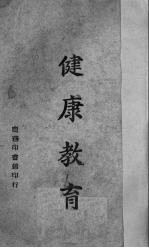 健康教育
商務印書館印行